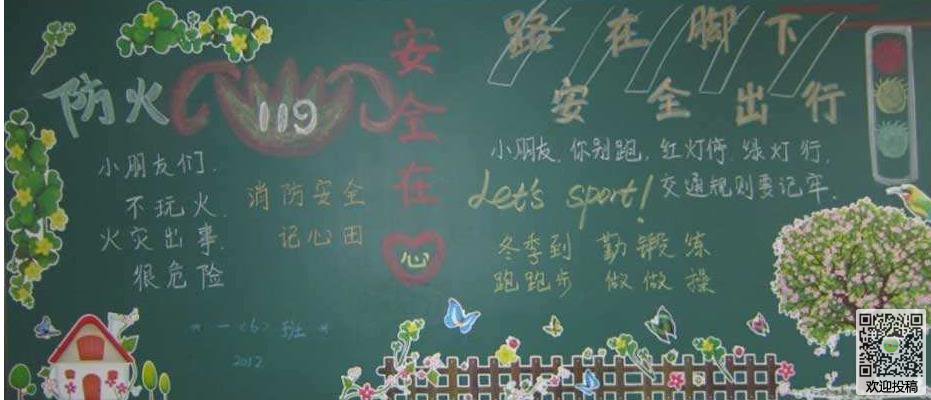 防火
119
小朋友们.
不玩火.
火灾出事.
狠危险
消防安全
记心田
* 一<6> 班 *
2012
安全在心
路在脚下
安全出行
小朋友.你别跑,红灯停.绿灯行,
交通规则要记牢.
Let's sport!
冬季到 勤锻练
跑跑步 做做操
欢迎投稿